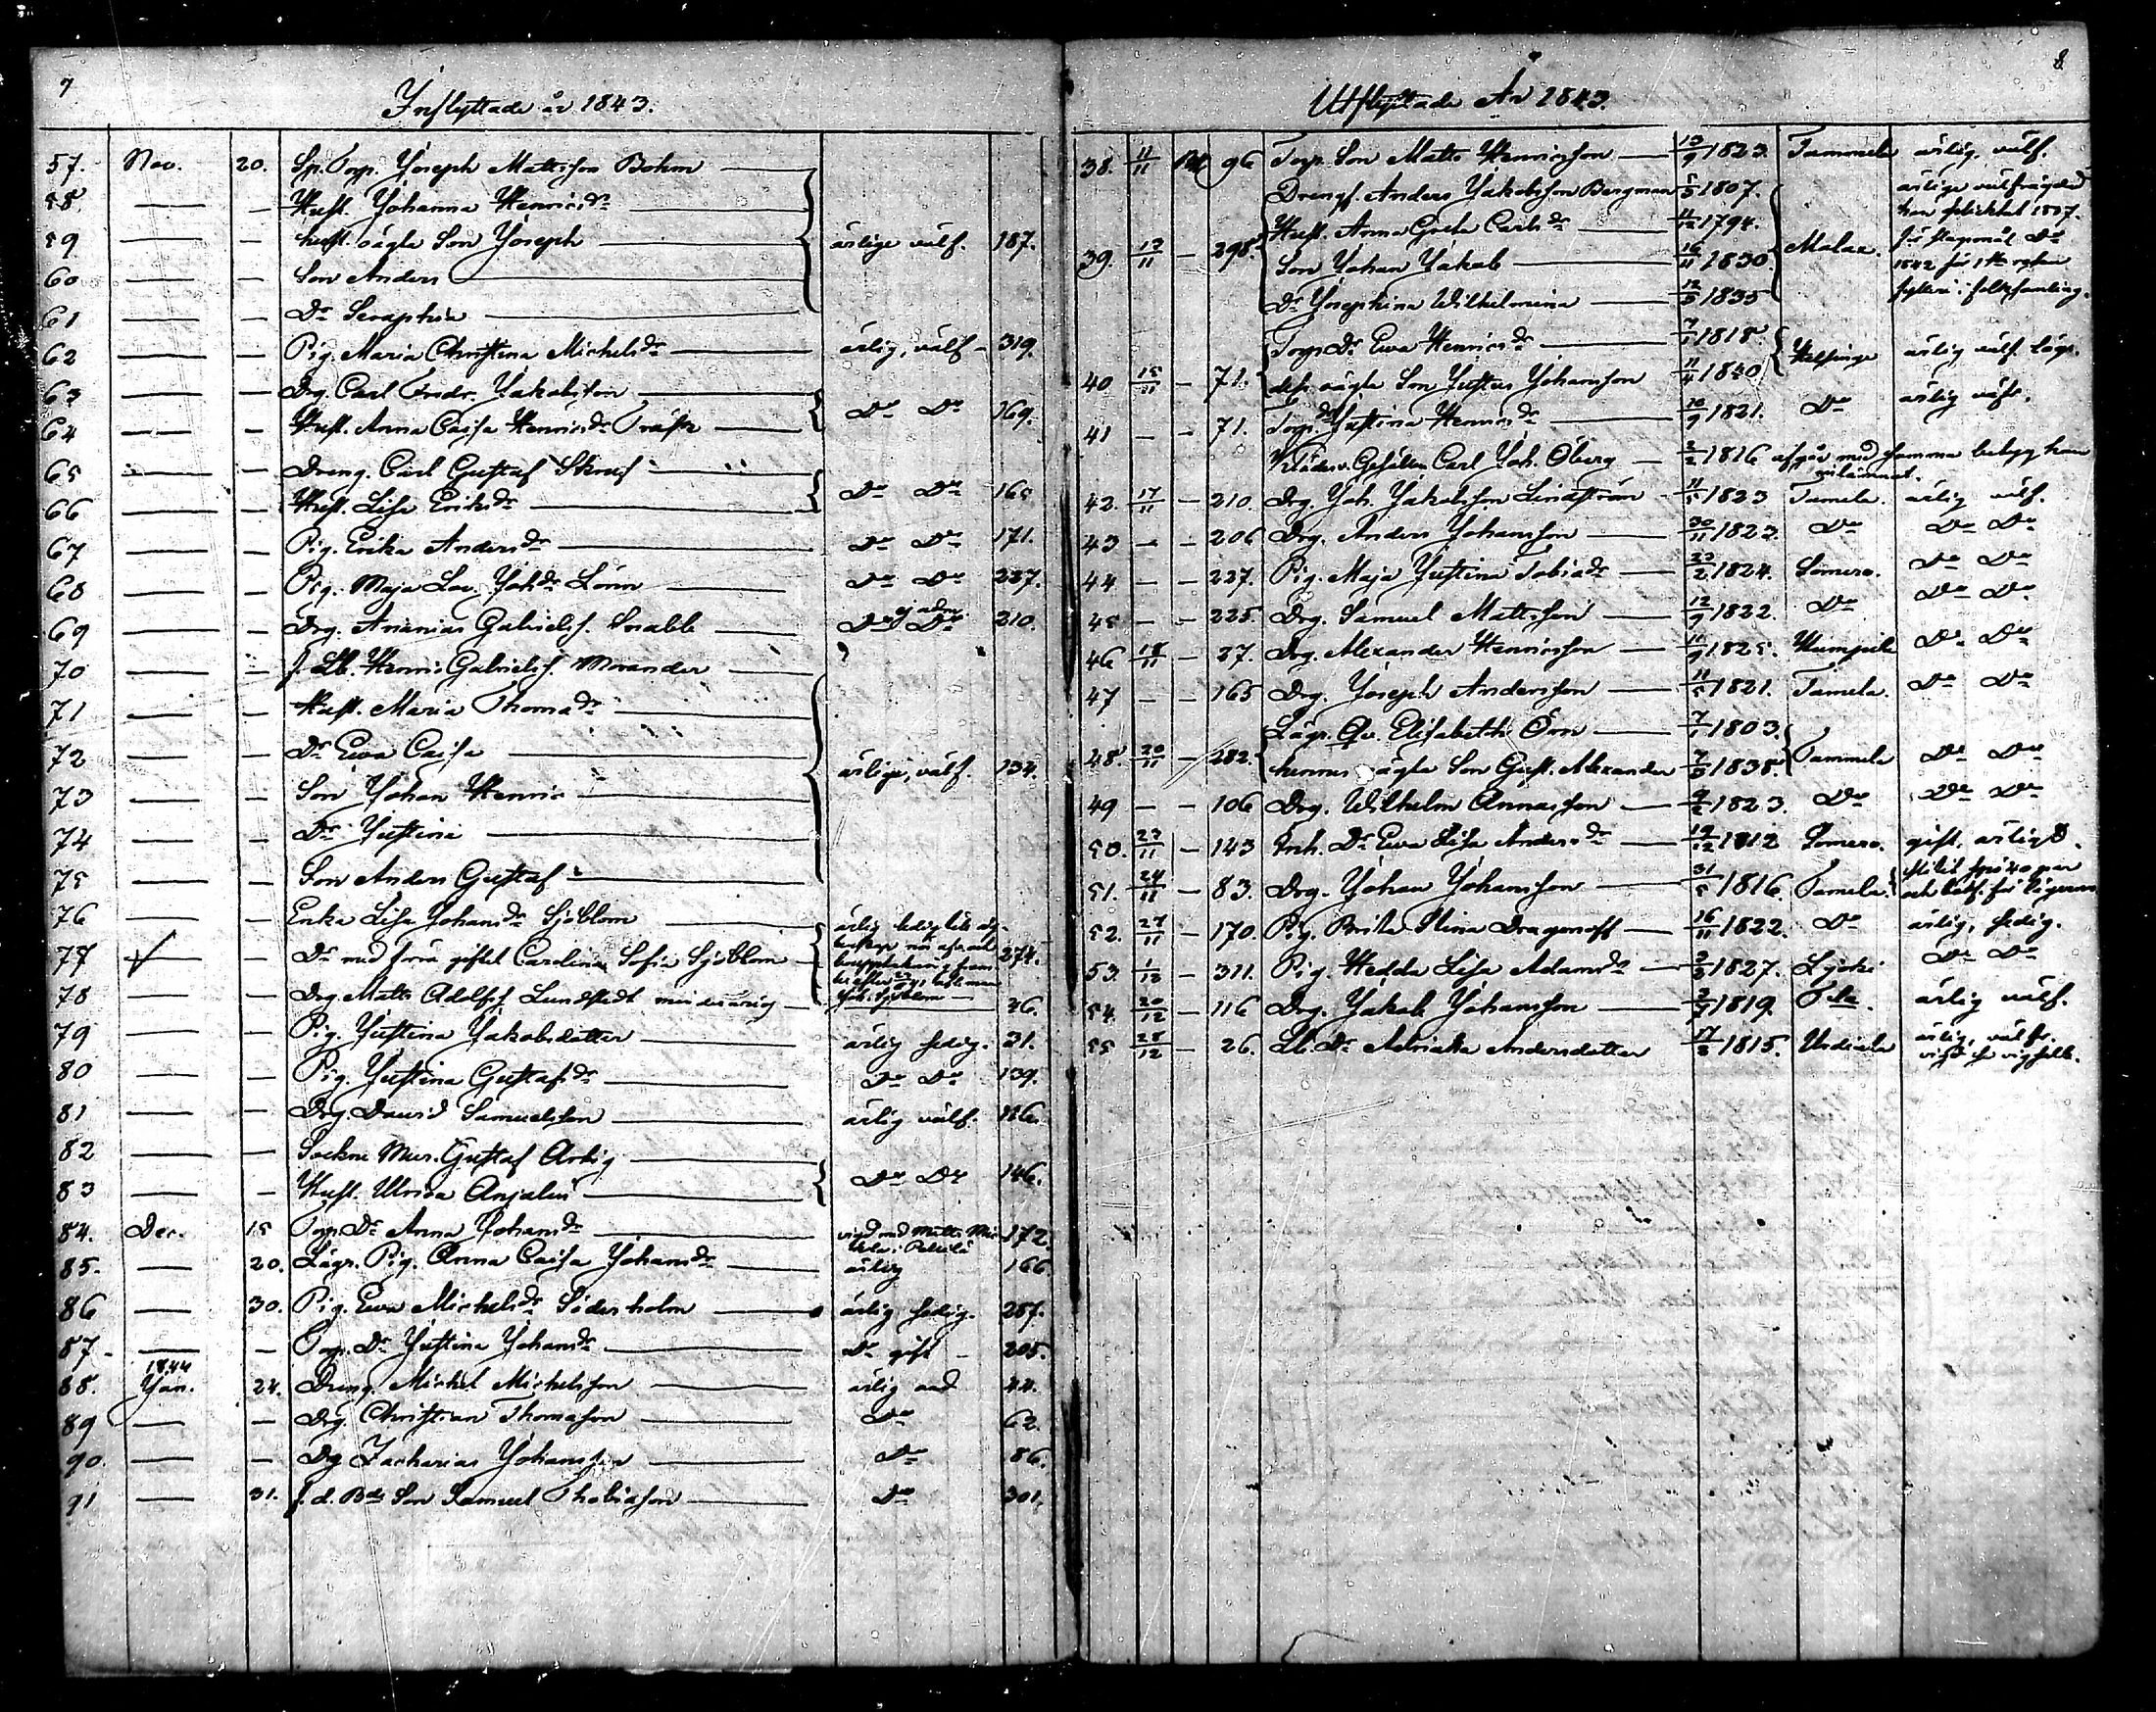 7
Inflyttade år 1843.
57. Nov. 20. Sp. Torp. Joseph Mattsson Bohm
58. — — Hust. Johanna Henricsdr
59 — — hust. oägta Son Joseph ärlige välf. 187.
60 — — Son Anders
61 — — Dr Seraphia
62 — — Pig. Maria Christina Michelsdr ärlig, välf 319.
63 — — Drg. Carl Fredr. Jakobsson
64 — — Hust. Anna Caisa Henricsdr Do Do 169.
65 — — Dreng. Carl Gustaf
66 — — Hust. Lisa Eriksdr Do Do 165
67 — — Pig. Erika Andersdr Do Do 171.
68 — — Pig. Maja Lov. Johdr Lönn Do Do 227.
69 — — Drg. Ananias Gabrielss. Snabb Do ej adm. Do 210.
70 — — f. Lb. Henric Gabrielss. Morander
71 — — Hust. Maria Thomadr
72 — — Dr Eva Caisa ärlige, välf. 134.
73 — — Son Johan Henric
74 — — Dr Justina
75 — — Son Anders Gustaf
76 — — Enka Lisa Johansdr Sjöblom
77 — — Dr med förra giftet Carolina Sofia Sjöblom 274.
78 — — Drg. Matts Adolfss. Lundstedt minderårig 36.
79 — — Pig. Justina Jakobsdotter ärlig sedig. 31.
80 — — Pig. Justina Gustafsdr Do Do 139.
81 — — Drg David Samuelsson ärlig välf. 126.
82 — — Sockne Mur. Gustaf Arbig
83 — — Hust. Ulrica Anjalin Do Do 146.
84. Dec. 15 Torp. Dr Anna Johansdr 172.
85. — 20. Lägr. Pig. Anna Caisa Johansdr ärlig 166
86 — 30. Pig. Eva Michelsdr Söderholm ärlig sedig. 287.
87 — — Torp. Dr Justina Johansdr Do gift — 205.
1844
88. Jan. 24. Dreng. Michel Michelsson ärlig 44.
89 — — Drg. Christian Thomasson Do 62.
90. — — Dg Zacharias Johansson Do 86.
91 — 31. f. d. Bde Son Samuel Thobiasson Do 301.
8
Utflyttade År 1843.
38. 11/11 96 Torp. Son Matts Henricsson 1823. Tammela ärlig. välf.
Drengs. Anders Jakobsson Bergman 1807.
Hust. Anna Greta Carlsdr 1794.
39. 298. Son Johan Jakob 16/11 1830
Dr Josephina Wilhelmina 12/3 1835
Torp Dr Eva Henricsdr 7/1 1818.
40 15/11 — 71. dess oägta Son Justus Johansson 11/4 1840 Helsinge ärlig välf.
41 — — 71. Torp. dr Justina Henricsdr 1821. Do ärlig välf.
Klädesv. Gesällen Carl Joh. Öberg 2/2 1816 afgår med samma betyg han
42. 17/11 — 210. Drg. Joh. Jakobsson Lindström 11/5 1823 Tamela. ärlig välf.
43 — — 206 Drg. Anders Johansson 30/11 1823. Do Do Do
44 — — 227. Pig. Maja Justina Tobiadr 1824. Somero. Do Do
45 — — 225 Drg. Samuel Mattsson 12/9 1822. Do Do Do
46 18/11 — 27. Drg. Alexander Henricsson 1825. Humppila Do Do
47 — — 165 Drg. Joseph Andersson 11/5 1821. Tamela. Do Do
Lägr. Qv. Elisabeth Örn 7/1 1803.
48. 20/11 — 282. hennes oägta Son Gust. Alexander 7/3 1838. Tammela Do Do
49 — — 106 Drg. Wilhelm Annasson 9/2 1823. Do Do Do
50. 23/11 — 143 Inh. Dr Eva Lisa Andersdr 19/12 1812 Somero. gift, ärlig
51. 24/11 — 83. Drg. Johan Johansson 31/5 1816. Tamela.
52. 27/11 — 170. Pig. Brita Stina Dragonoff 16/11 1822. Do ärlig, sedig.
53. — 311. Pig. Hedda Lisa Adamsdr 1827. Do Do
54. 20/12 — 116 Drg. Jakob Johansson 1819. ärlig välf.
55 28/12 — 26. Lb. Dr Adriana Andersdotter 1815. Urdiala ärlig, välf.